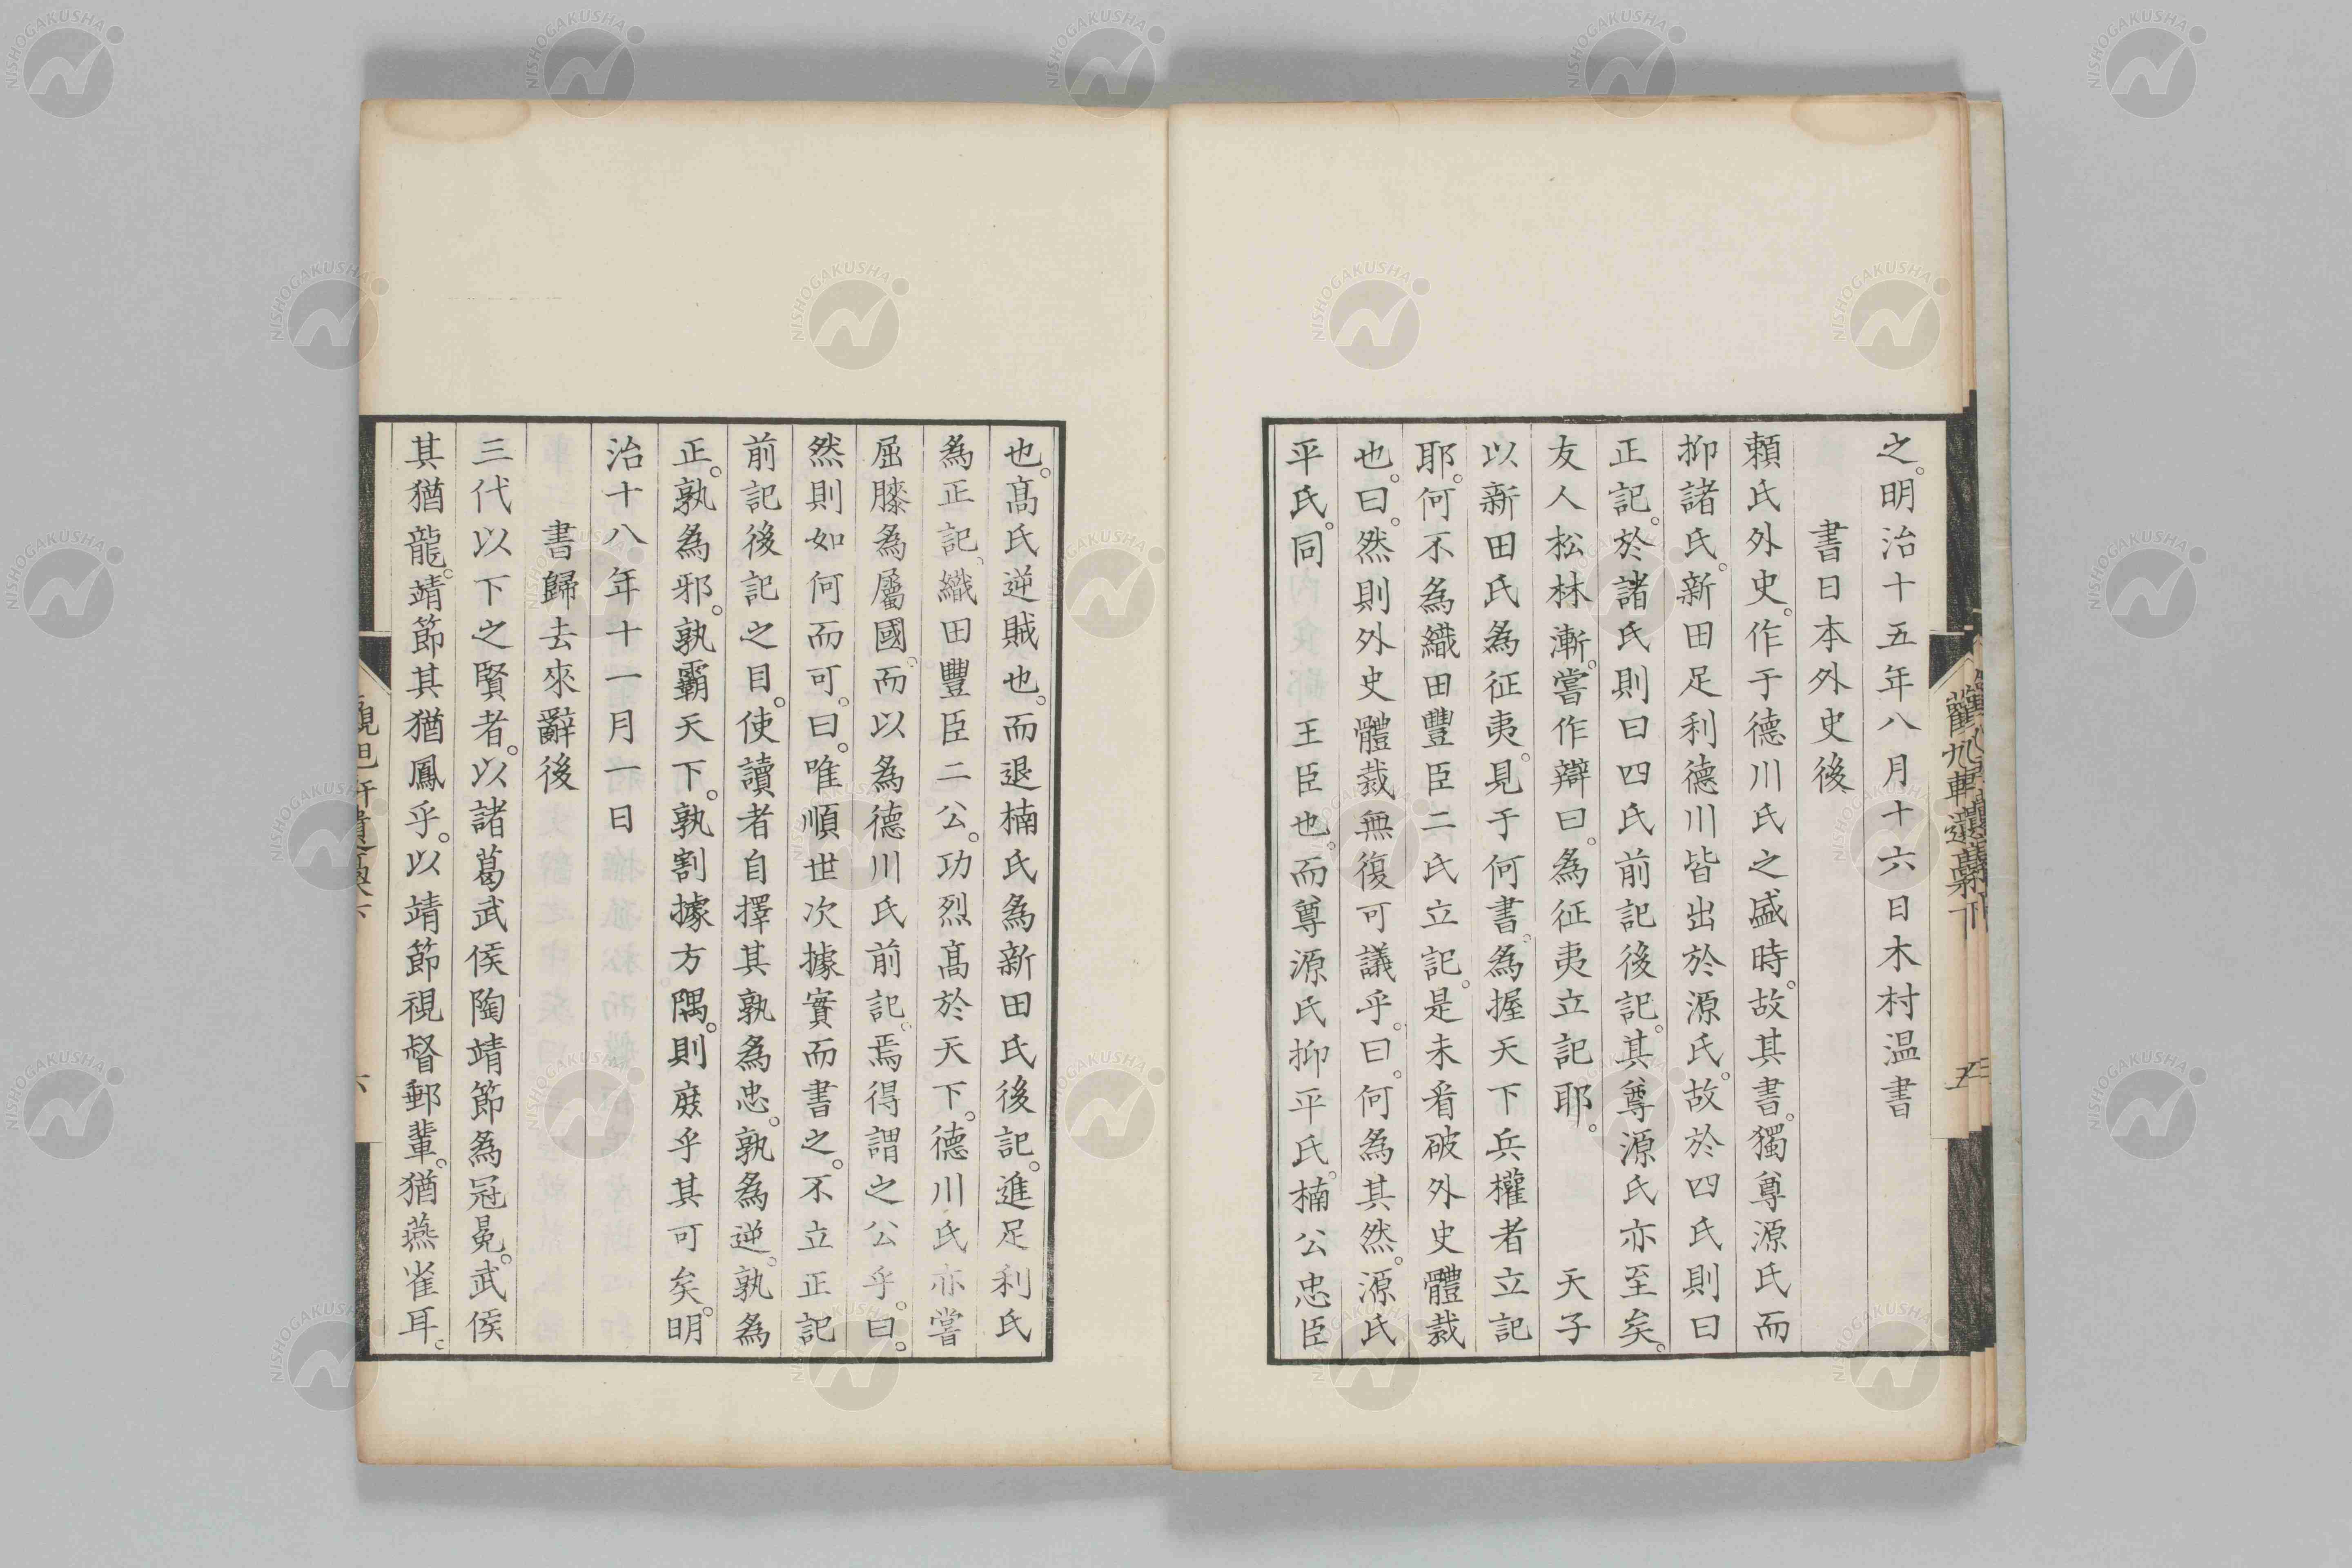 之。明治十五年八月十六日木村温書
書日本外史後
頼氏外史。作于德川氏之盛時。故其書。獨尊源氏而
抑諸氏。新田足利德川皆出於源氏。故於四氏則曰
正記。於諸氏則曰四氏前記後記。其尊源氏亦至矣。
友人松林漸。嘗作辯曰。為征夷立記耶。 天子
以新田氏為征夷。見于何書。為握天下兵權者立記
耶。何不為織田豐臣二氏立記。是未看破外史體裁
也。曰。然則外史體裁無復可議乎。曰。何為其然。源氏
平氏。同 王臣也。而尊源氏抑平氏。楠公忠臣
也。髙氏逆賊也。而退楠氏為新田氏後記。進足利氏
為正記。織田豐臣二公。功烈髙於天下。德川氏亦嘗
屈膝為屬國。而以為德川氏前記。焉得謂之公乎。曰。
然則如何而可。曰。唯順世次據實而書之。不立正記
前記後記之目。使讀者自擇其孰為忠。孰為逆。孰為
正。孰為邪。孰霸天下。孰割據方隅。則庶乎其可矣。明
治十八年十一月一日
書歸去來辭後
三代以下之賢者。以諸葛武侯陶靖節為冠冕。武侯
其猶龍。靖節其猶鳳乎。以靖節視督郵輩。猶燕雀耳。
NISHOGAKUSHA